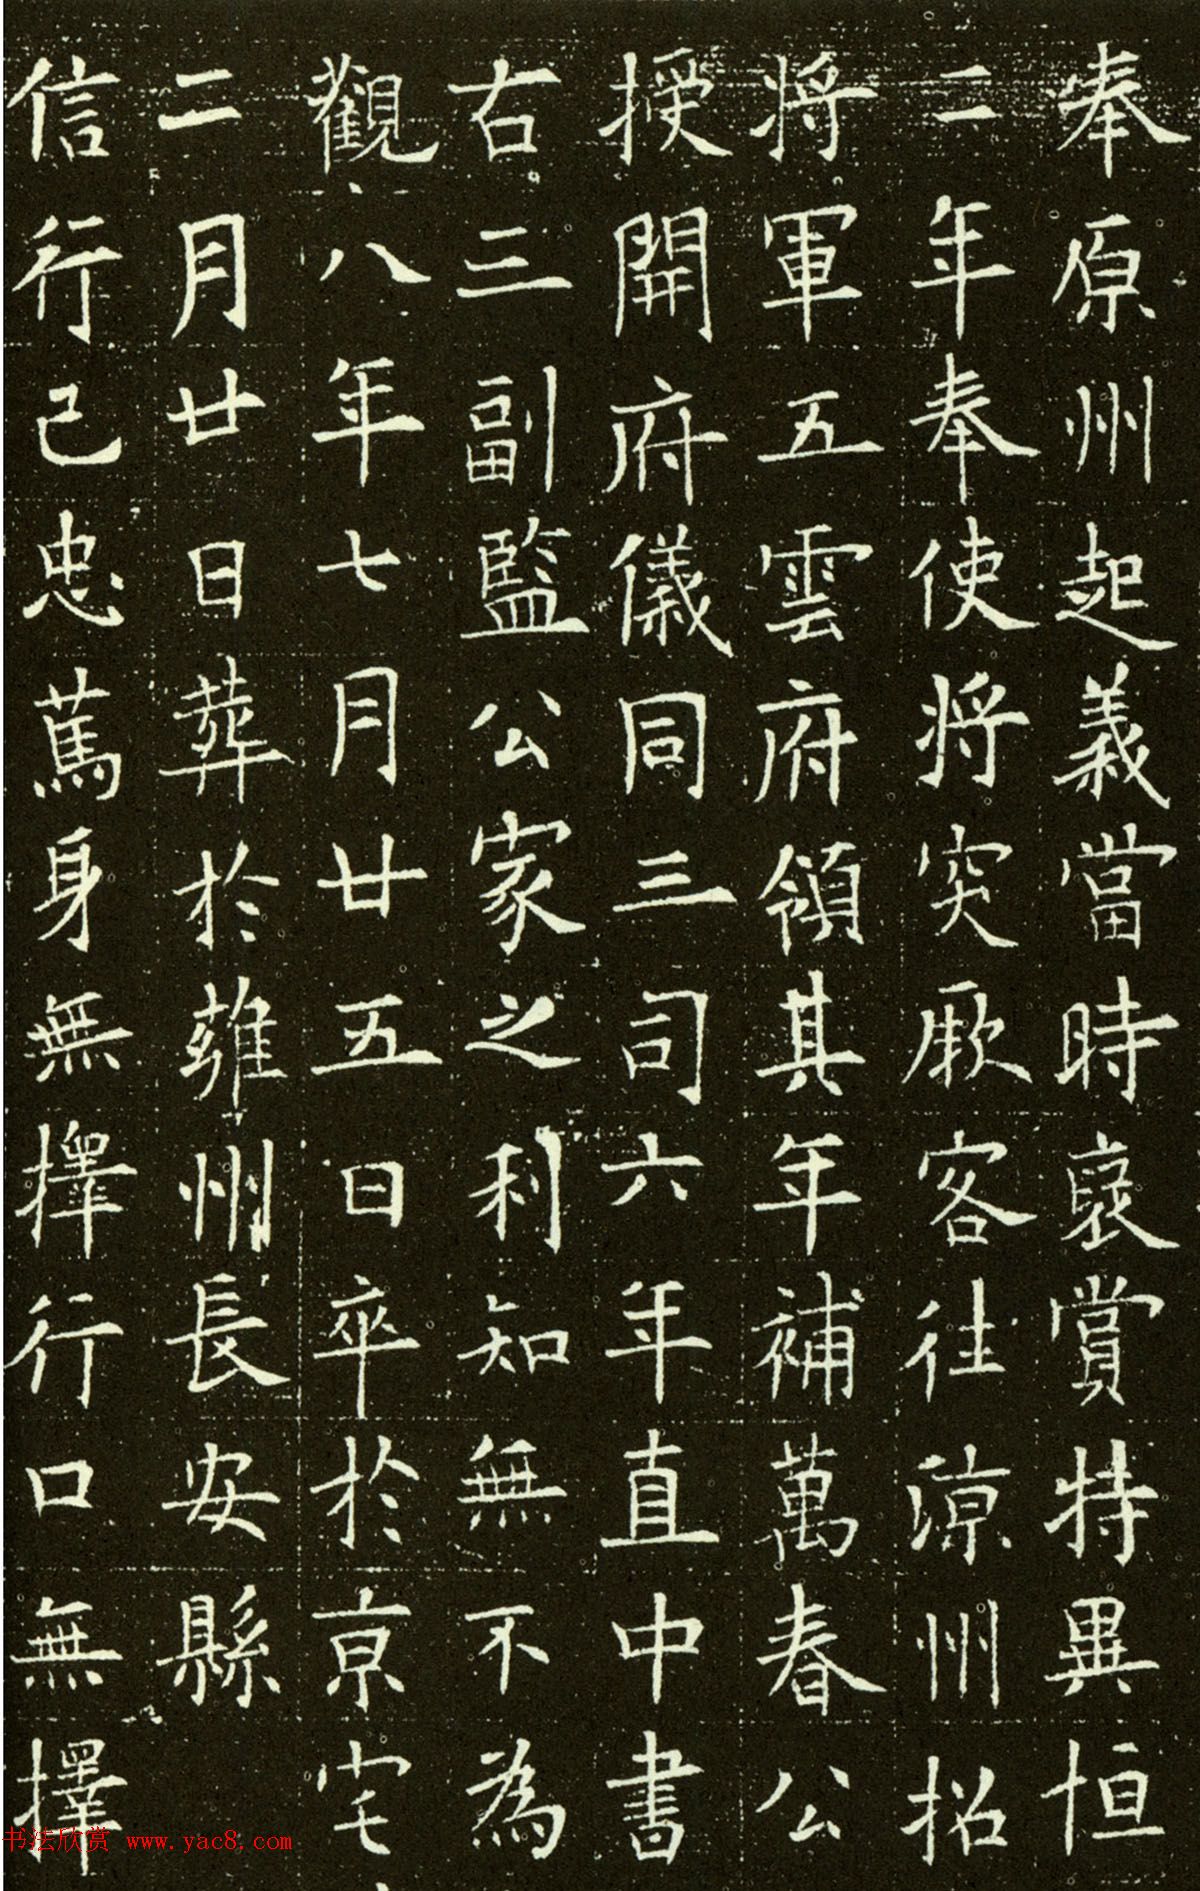 奉原州起義當時褒賞特異恒
二年奉使將突厥客往涼州招
将軍五雲府領其年補萬春公
授開府儀同三司六年直中書
右三副監公家之利知無不為
觀八年七月廿五日卒於京宅
二月廿日葬於雍州長安縣
信行己忠篤身無擇行口無擇
书法欣赏 www.yac8.com